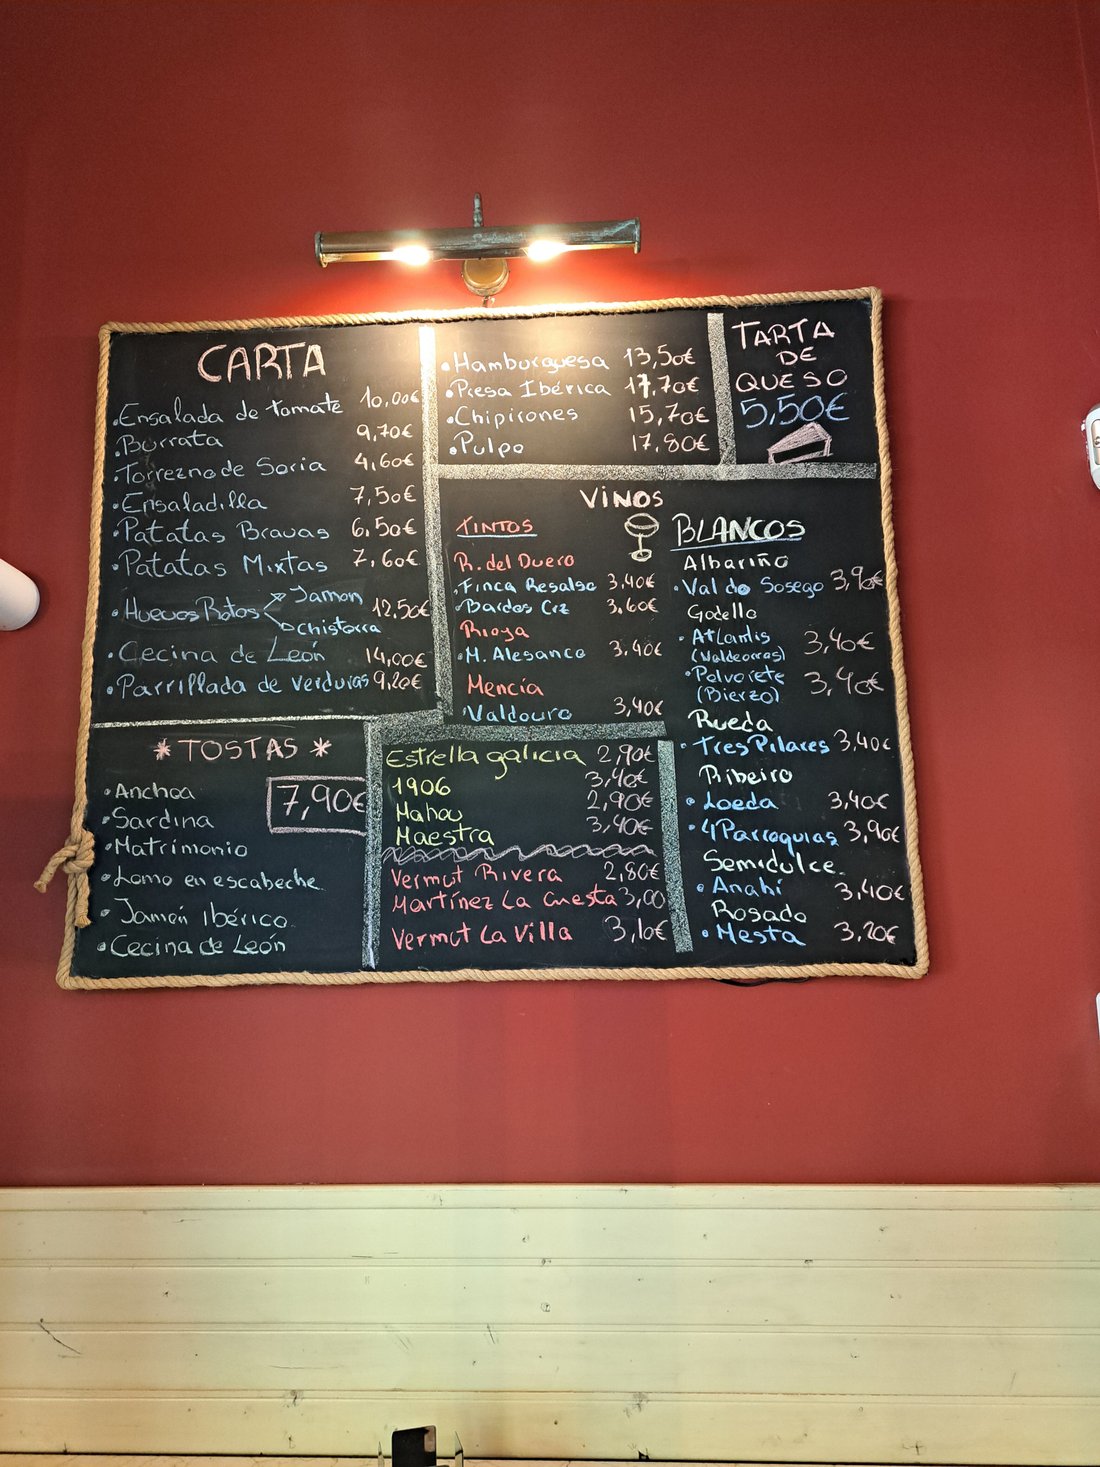 CARTA
• Ensalada de tomate 10,00€
• Burrata 9,70€
• Torrezno de Soria 4,60€
• Ensaladilla 7,50€
• Patatas Bravas 6,50€
• Patatas Mixtas 7,60€
• Huevos Rotos Jamon 12,50€
chistorra
• Cecina de León 14,00€
• Parrillada de verduras 9,20€
* TOSTAS *
7,90€
• Anchoa
• Sardina
• Matrimonio
• Lomo en escabeche
• Jamón Ibérico
• Cecina de León
• Hamburguesa 13,50€
• Presa Ibérica 17,70€
• Chipirones 15,70€
• Pulpo 17,80€
TARTA
DE
QUESO
5,50€
VINOS
TINTOS
R. del Duero
• Finca Resalso 3,40€
• Bardos Crz 3,60€
Rioja
• M. Alesanco 3,40€
Mencía
• Valdouro 3,40€
BLANCOS
Albariño
• Val do Sosego 3,90€
Godello
• Atlantis 3,40€
(Valdeorras)
• Polvorete 3,40€
(Bierzo)
Rueda
• Tres Pilares 3,40€
Ribeiro
• Loeda 3,40€
• 4 Parroquias 3,90€
Semidulce.
• Anahí 3,40€
Rosado
• Mesta 3,20€
Estrella galicia 2,90€
1906 3,40€
Mahou 2,90€
Maestra 3,40€
Vermut Rivera 2,80€
Martínez La Cuesta 3,00
Vermut La Villa 3,10€